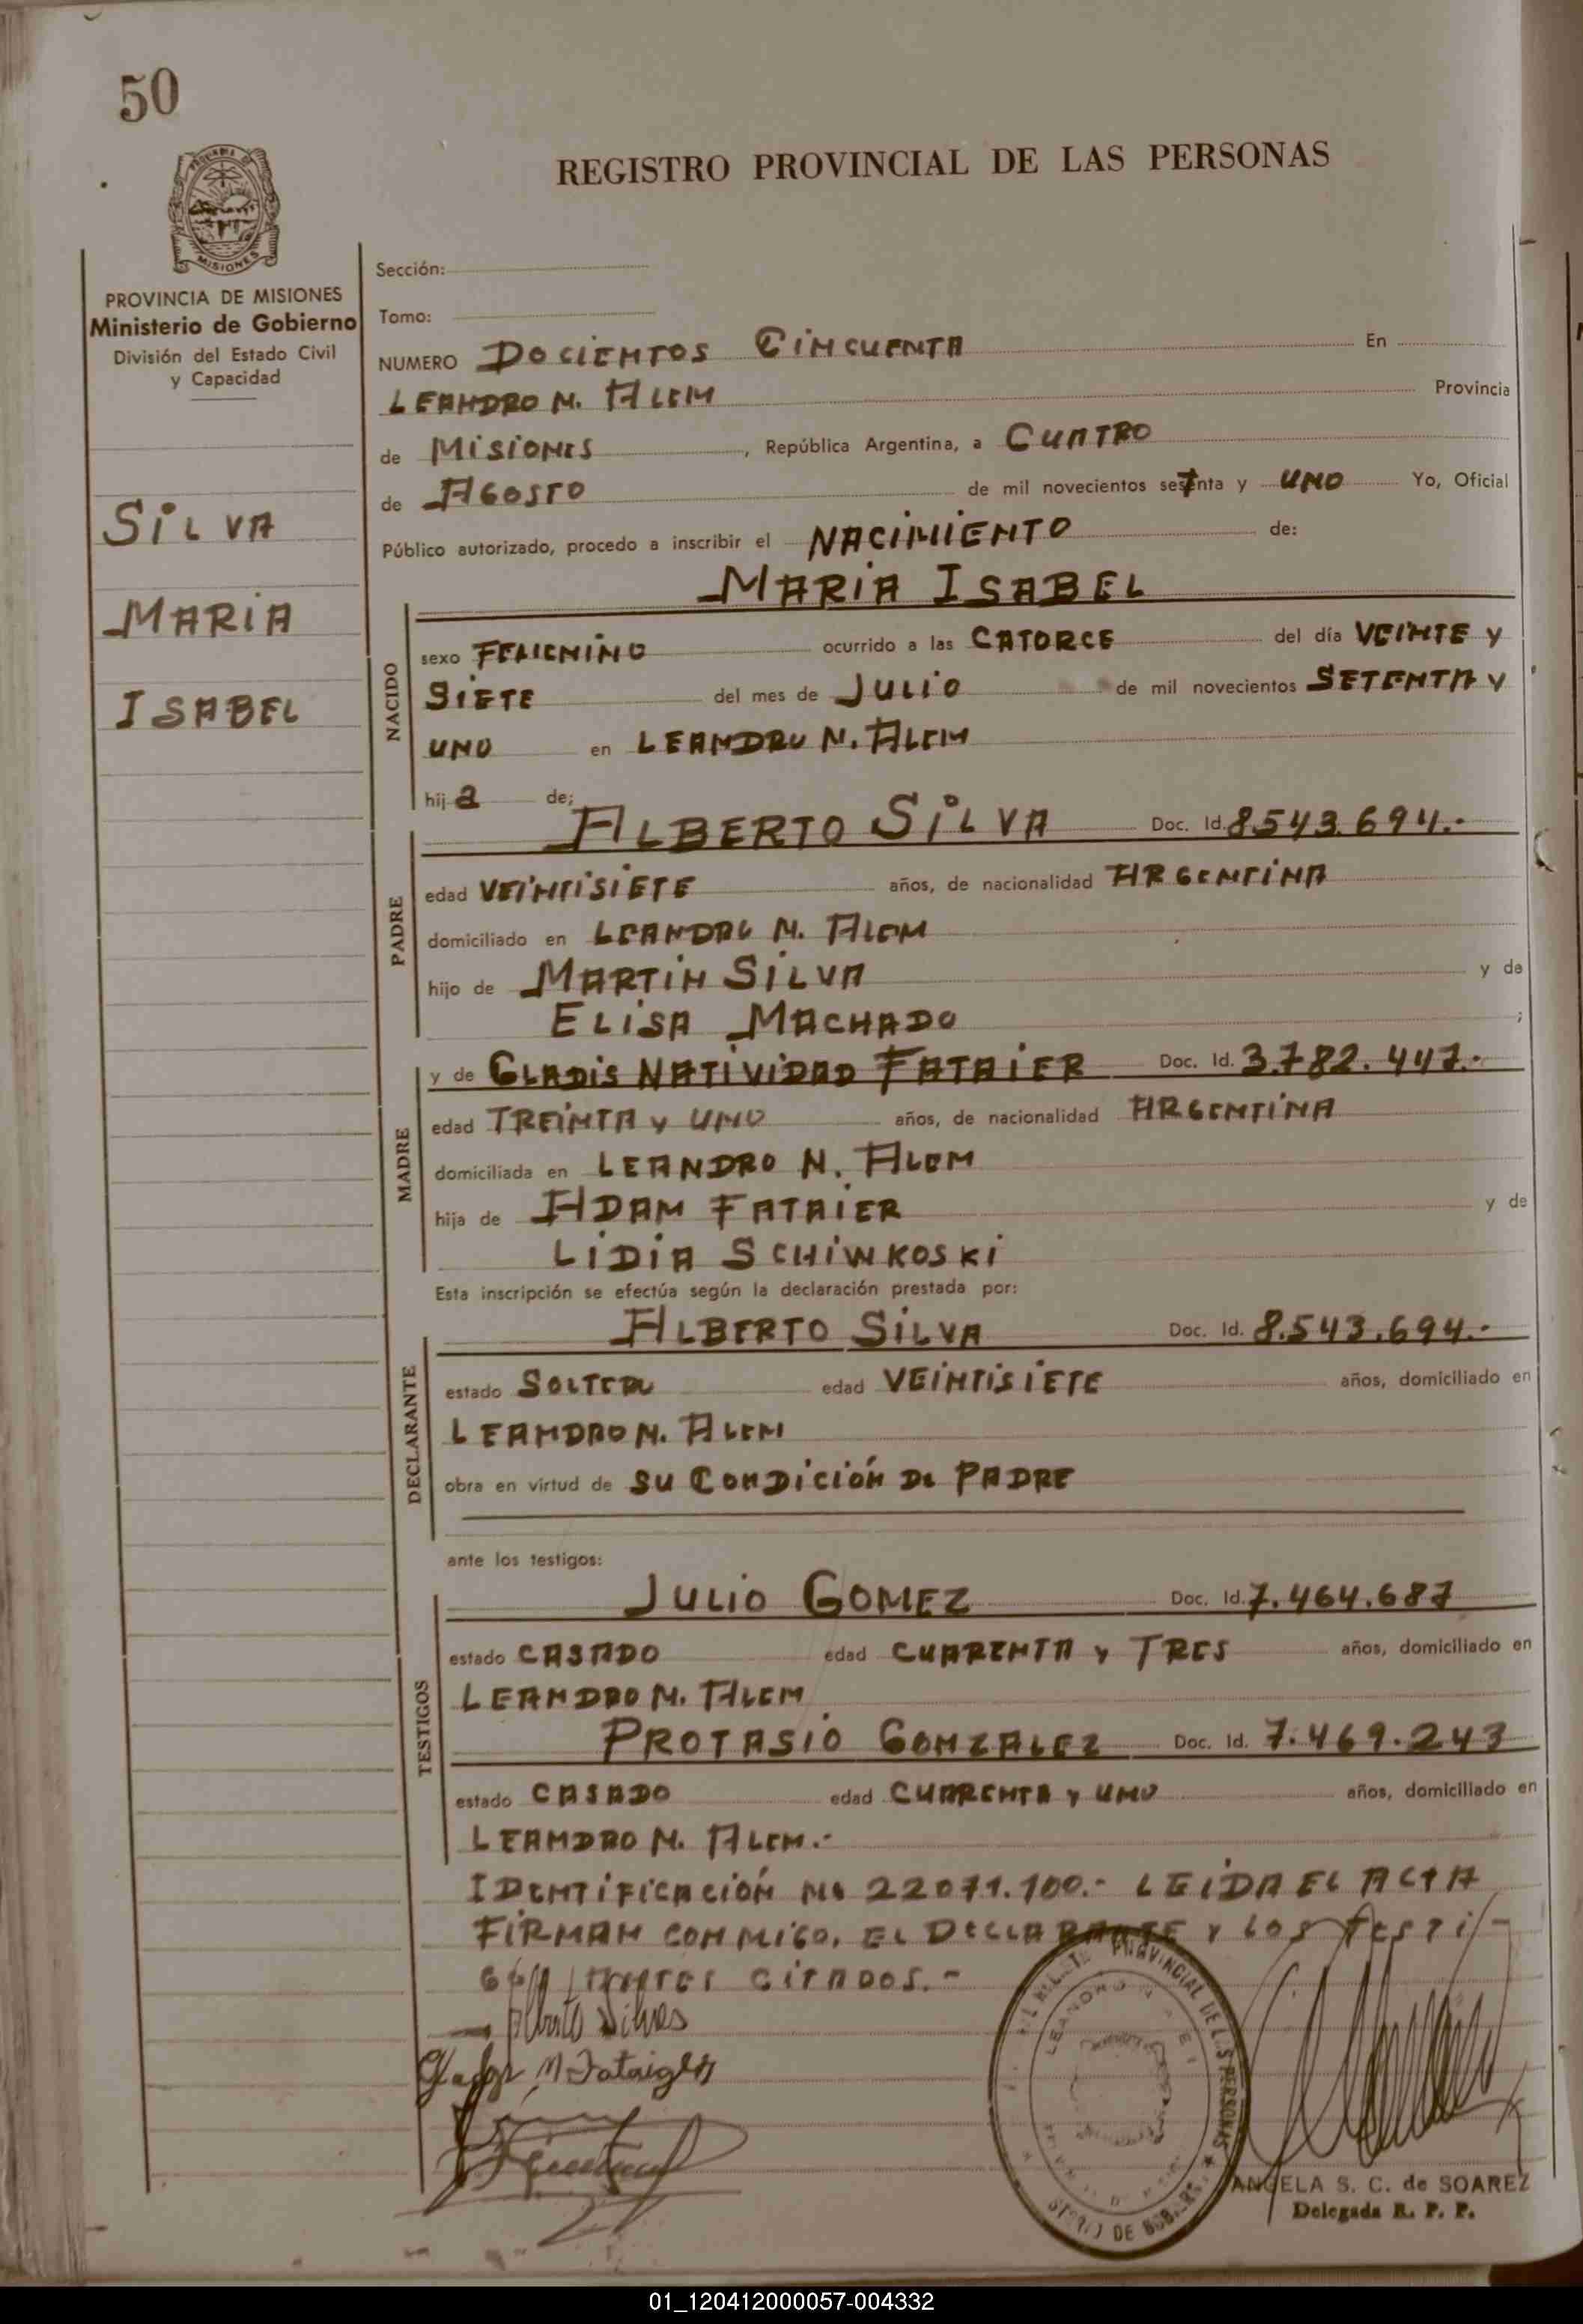 50
REGISTRO PROVINCIAL DE LAS PERSONAS
MISIONES
PROVINCIA DE MISIONES
Ministerio de Gobierno
División del Estado Civil
y Capacidad
SILVA
MARIA
ISABEL
Sección:
Tomo:
NUMERO DOCIENTOS CINCUENTA En
LEANDRO N. ALEM Provincia
de MISIONES, República Argentina, a CUATRO
de AGOSTO de mil novecientos setenta y UNO Yo, Oficial
Público autorizado, procedo a inscribir el NACIMIENTO de:
MARIA ISABEL
NACIDO
sexo FEMENINO ocurrido a las CATORCE del día VEINTE y
SIETE del mes de JULIO de mil novecientos SETENTA y
UNO en LEANDRO N. ALEM
hija de;
ALBERTO SILVA Doc. Id. 8.543.694.-
PADRE
edad VEINTISIETE años, de nacionalidad ARGENTINA
domiciliado en LEANDRO N. ALEM
hijo de MARTIN SILVA y de
ELISA MACHADO ;
y de GLADIS NATIVIDAD FATAIER Doc. Id. 3.782.447.-
MADRE
edad TREINTA y UNO años, de nacionalidad ARGENTINA
domiciliada en LEANDRO N. ALEM
hija de ADAM FATAIER y de
LIDIA SCHIWKOSKI
Esta inscripción se efectúa según la declaración prestada por:
ALBERTO SILVA Doc. Id. 8.543.694.-
DECLARANTE
estado SOLTERO edad VEINTISIETE años, domiciliado en
LEANDRO N. ALEM
obra en virtud de SU CONDICIÓN DE PADRE
ante los testigos:
JULIO GOMEZ Doc. Id. 7.464.687
TESTIGOS
estado CASADO edad CUARENTA y TRES años, domiciliado en
LEANDRO N. ALEM
PROTASIO GONZALEZ Doc. Id. 7.469.243
estado CASADO edad CUARENTA y UNO años, domiciliado en
LEANDRO N. ALEM.-
IDENTIFICACIÓN No 22071.100.- LEIDA EL ACTA
FIRMAN CONMIGO, EL DECLARANTE y LOS TESTI-
GOS ANTES CITADOS.-
Alberto Silva
PROVINCIAL DE LAS PERSONAS
LEANDRO N.
ANGELA S. C. de SOAREZ
Delegada R. P. P.
01_120412000057-004332